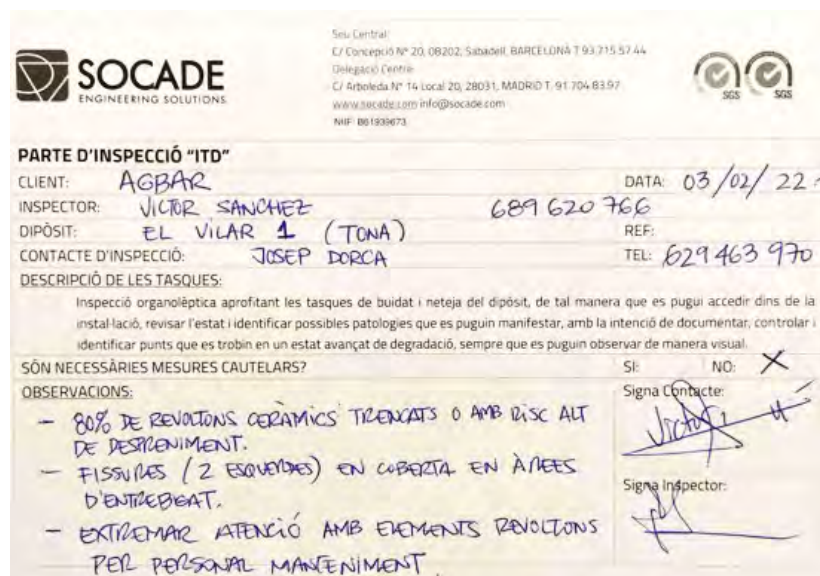 SOCADE
ENGINEERING SOLUTIONS
Seu Central:
C/ Concepció Nº 20, 08202, Sabadell, BARCELONA T 93 715 57 44
Delegació Centre:
C/ Arboleda Nº 14 Local 20, 28031, MADRID T. 91 704 83 97
www.socade.com info@socade.com
NIF: B61939673
SGS SGS
PARTE D'INSPECCIÓ "ITD"
CLIENT: AGBAR DATA: 03/02/22
INSPECTOR: VICTOR SANCHEZ 689 620 766
DIPÒSIT: EL VILAR 1 (TONA) REF:
CONTACTE D'INSPECCIÓ: JOSEP DORCA TEL: 629 463 970
DESCRIPCIÓ DE LES TASQUES:
Inspecció organolèptica aprofitant les tasques de buidat i neteja del dipòsit, de tal manera que es pugui accedir dins de la
instal·lació, revisar l'estat i identificar possibles patologies que es puguin manifestar, amb la intenció de documentar, controlar i
identificar punts que es trobin en un estat avançat de degradació, sempre que es puguin observar de manera visual.
SÓN NECESSÀRIES MESURES CAUTELARS? SI: NO: X
OBSERVACIONS:
- 80% DE REVOLTONS CERÀMICS TRENCATS O AMB RISC ALT
DE DESPRENIMENT.
- FISSURES (2 ESQUERDES) EN COBERTA EN ÀREES
D'ENTREBIGAT.
- EXTREMAR ATENCIÓ AMB ELEMENTS REVOLTONS
PER PERSONAL MANTENIMENT
Signa Contacte:
Signa Inspector: